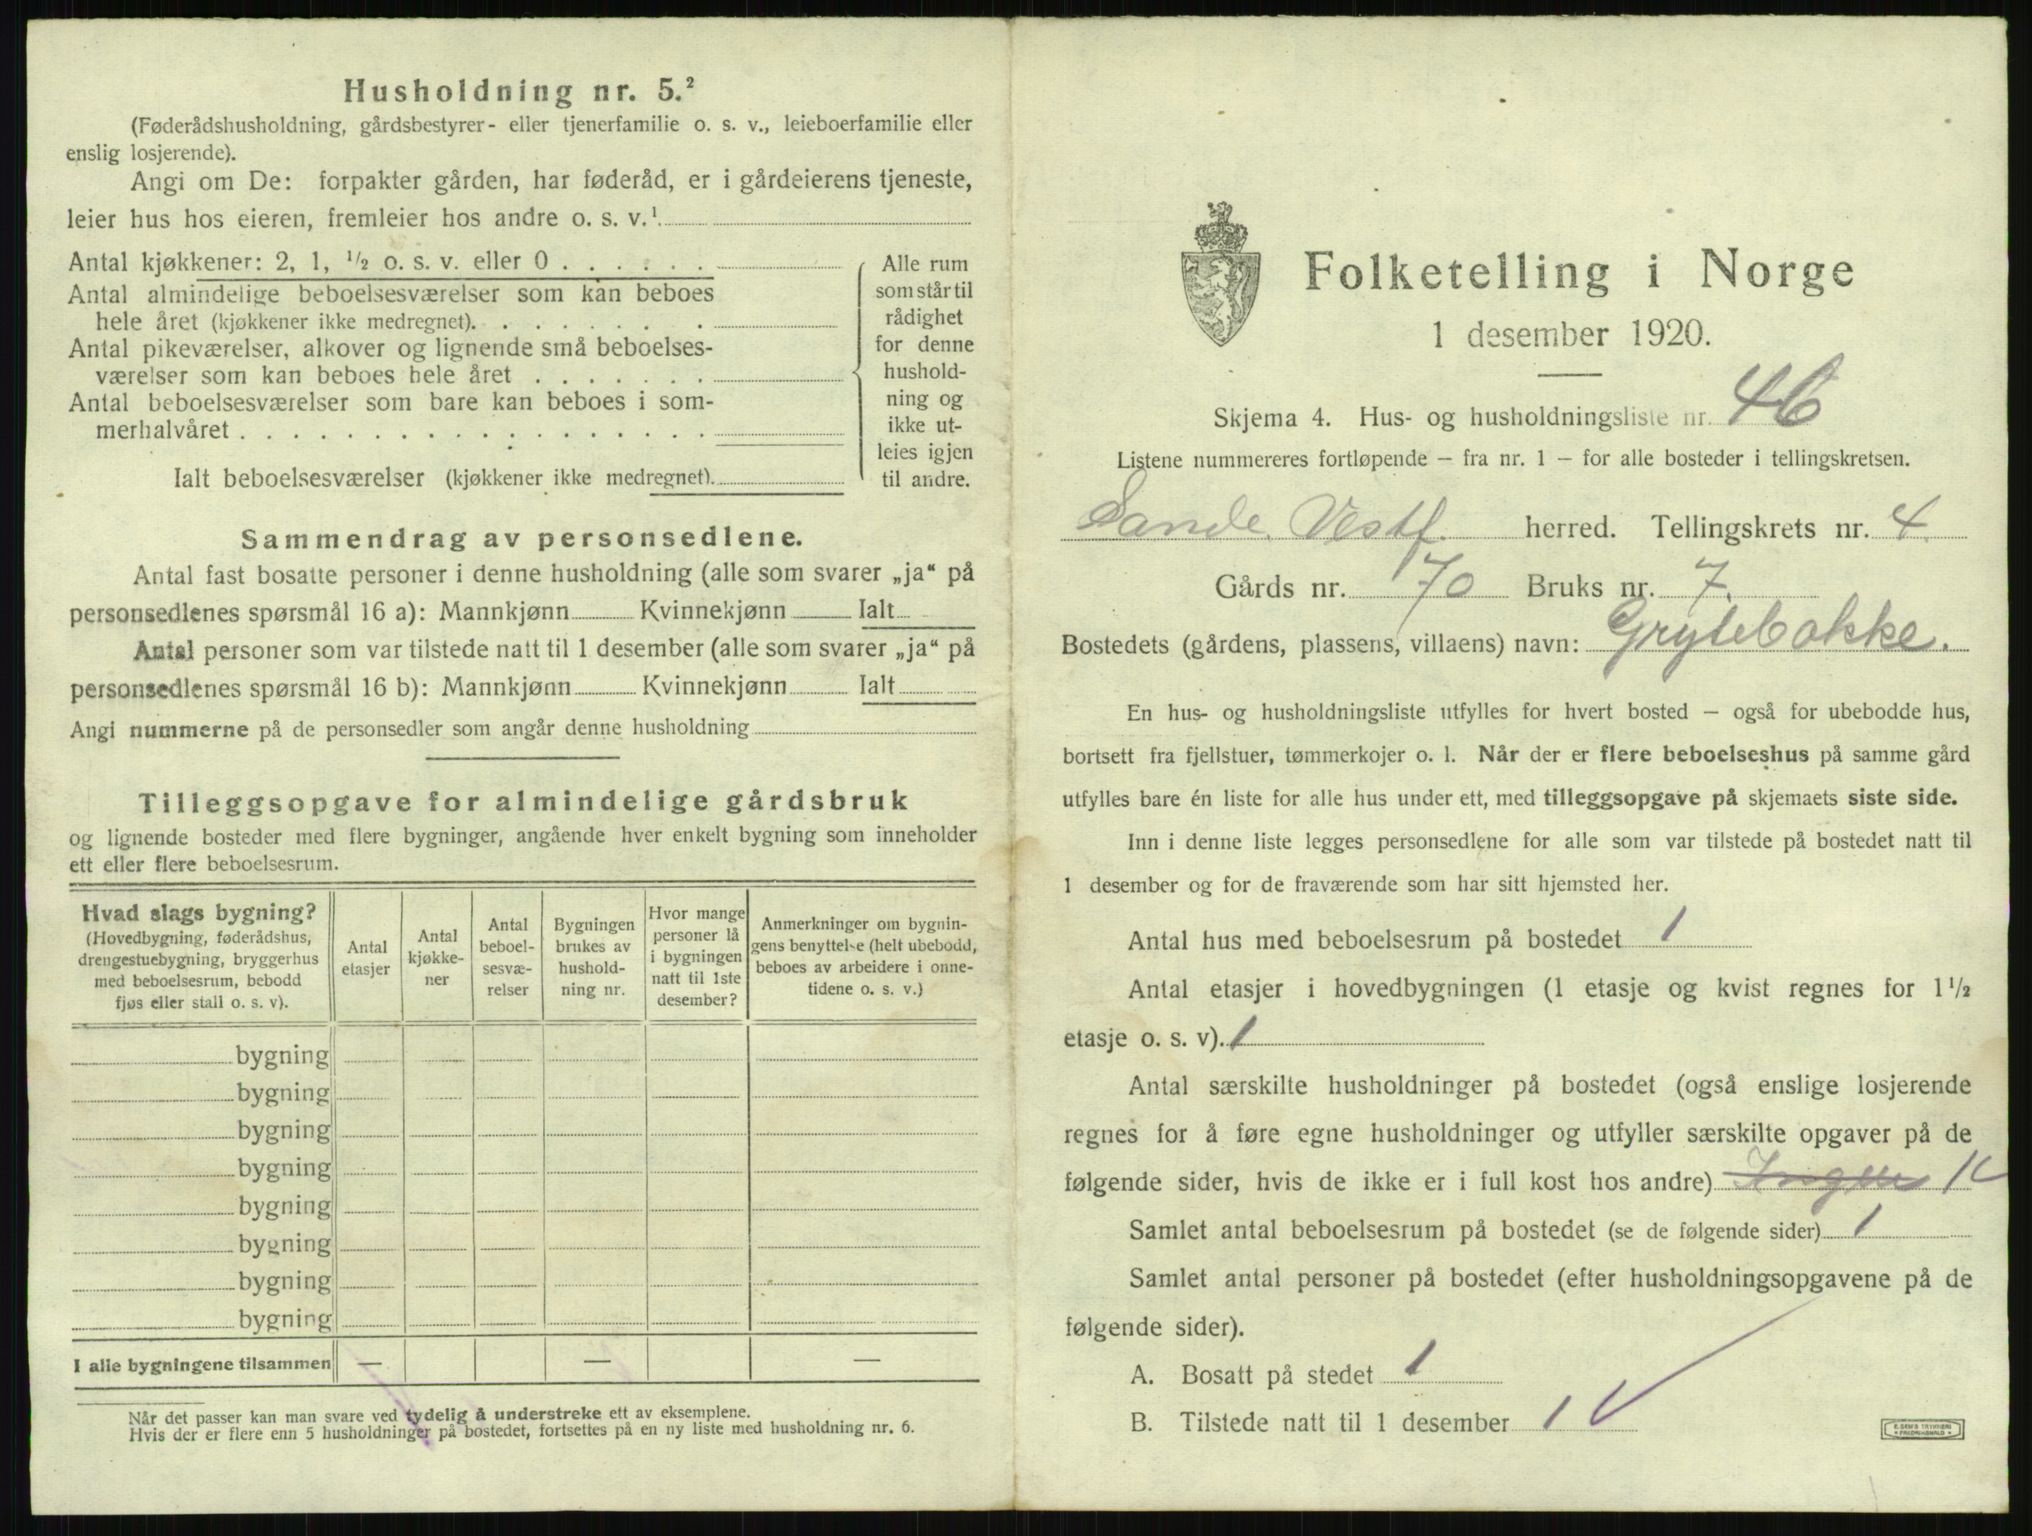 Husholdning nr. 5.²
(Føderådshusholdning, gårdsbestyrer- eller tjenerfamilie o. s. v., leieboerfamilie eller
enslig losjerende).
Angi om De: forpakter gården, har føderåd, er i gårdeierens tjeneste,
leier hus hos eieren, fremleier hos andre o. s. v.¹
Antal kjøkkener: 2, 1, ½ o. s. v. eller 0 . . . . . .
Antal almindelige beboelsesværelser som kan beboes
hele året (kjøkkener ikke medregnet). . . . . . . .
Antal pikeværelser, alkover og lignende små beboelses-
værelser som kan beboes hele året . . . . . . .
Antal beboelsesværelser som bare kan beboes i som-
merhalvåret . . . . . . . . . . . . . . . . . .
Ialt beboelsesværelser (kjøkkener ikke medregnet).
Alle rum
som står til
rådighet
for denne
hushold-
ning og
ikke ut-
leies igjen
til andre.
Sammendrag av personsedlene.
Antal fast bosatte personer i denne husholdning (alle som svarer „ja“ på
personsedlenes spørsmål 16 a): Mannkjønn Kvinnekjønn Ialt
Antal personer som var tilstede natt til 1 desember (alle som svarer „ja“ på
personsedlenes spørsmål 16 b): Mannkjønn Kvinnekjønn Ialt
Angi nummerne på de personsedler som angår denne husholdning
Tilleggsopgave for almindelige gårdsbruk
og lignende bosteder med flere bygninger, angående hver enkelt bygning som inneholder
ett eller flere beboelsesrum.
Hvad slags bygning?
(Hovedbygning, føderådshus,
drengestuebygning, bryggerhus
med beboelsesrum, bebodd
fjøs eller stall o. s. v).
Antal
etasjer
Antal
kjøkke-
ner
Antal
beboel-
sesvæ-
relser
Bygningen
brukes av
hushold-
ning nr.
Hvor mange
personer lå
i bygningen
natt til 1ste
desember?
Anmerkninger om bygnin-
gens benyttelse (helt ubebodd,
beboes av arbeidere i onne-
tidene o. s. v.)
bygning
bygning
bygning
bygning
bygning
bygning
bygning
bygning
I alle bygningene tilsammen — — —
Når det passer kan man svare ved tydelig å understreke ett av eksemplene.
Hvis der er flere enn 5 husholdninger på bostedet, fortsettes på en ny liste med husholdning nr. 6.
Folketelling i Norge
1 desember 1920.
Skjema 4. Hus- og husholdningsliste nr. 46
Listene nummereres fortløpende – fra nr. 1 – for alle bosteder i tellingskretsen.
Sande Vestf. herred. Tellingskrets nr. 4.
Gårds nr. 70 Bruks nr. 7.
Bostedets (gårdens, plassens, villaens) navn: Grytebakke.
En hus- og husholdningsliste utfylles for hvert bosted – også for ubebodde hus,
bortsett fra fjellstuer, tømmerkojer o. l. Når der er flere beboelseshus på samme gård
utfylles bare én liste for alle hus under ett, med tilleggsopgave på skjemaets siste side.
Inn i denne liste legges personsedlene for alle som var tilstede på bostedet natt til
1 desember og for de fraværende som har sitt hjemsted her.
Antal hus med beboelsesrum på bostedet 1
Antal etasjer i hovedbygningen (1 etasje og kvist regnes for 1½
etasje o. s. v). 1
Antal særskilte husholdninger på bostedet (også enslige losjerende
regnes for å føre egne husholdninger og utfyller særskilte opgaver på de
følgende sider, hvis de ikke er i full kost hos andre) 1
Samlet antal beboelsesrum på bostedet (se de følgende sider) 1
Samlet antal personer på bostedet (efter husholdningsopgavene på de
følgende sider).
A. Bosatt på stedet 1
B. Tilstede natt til 1 desember 1